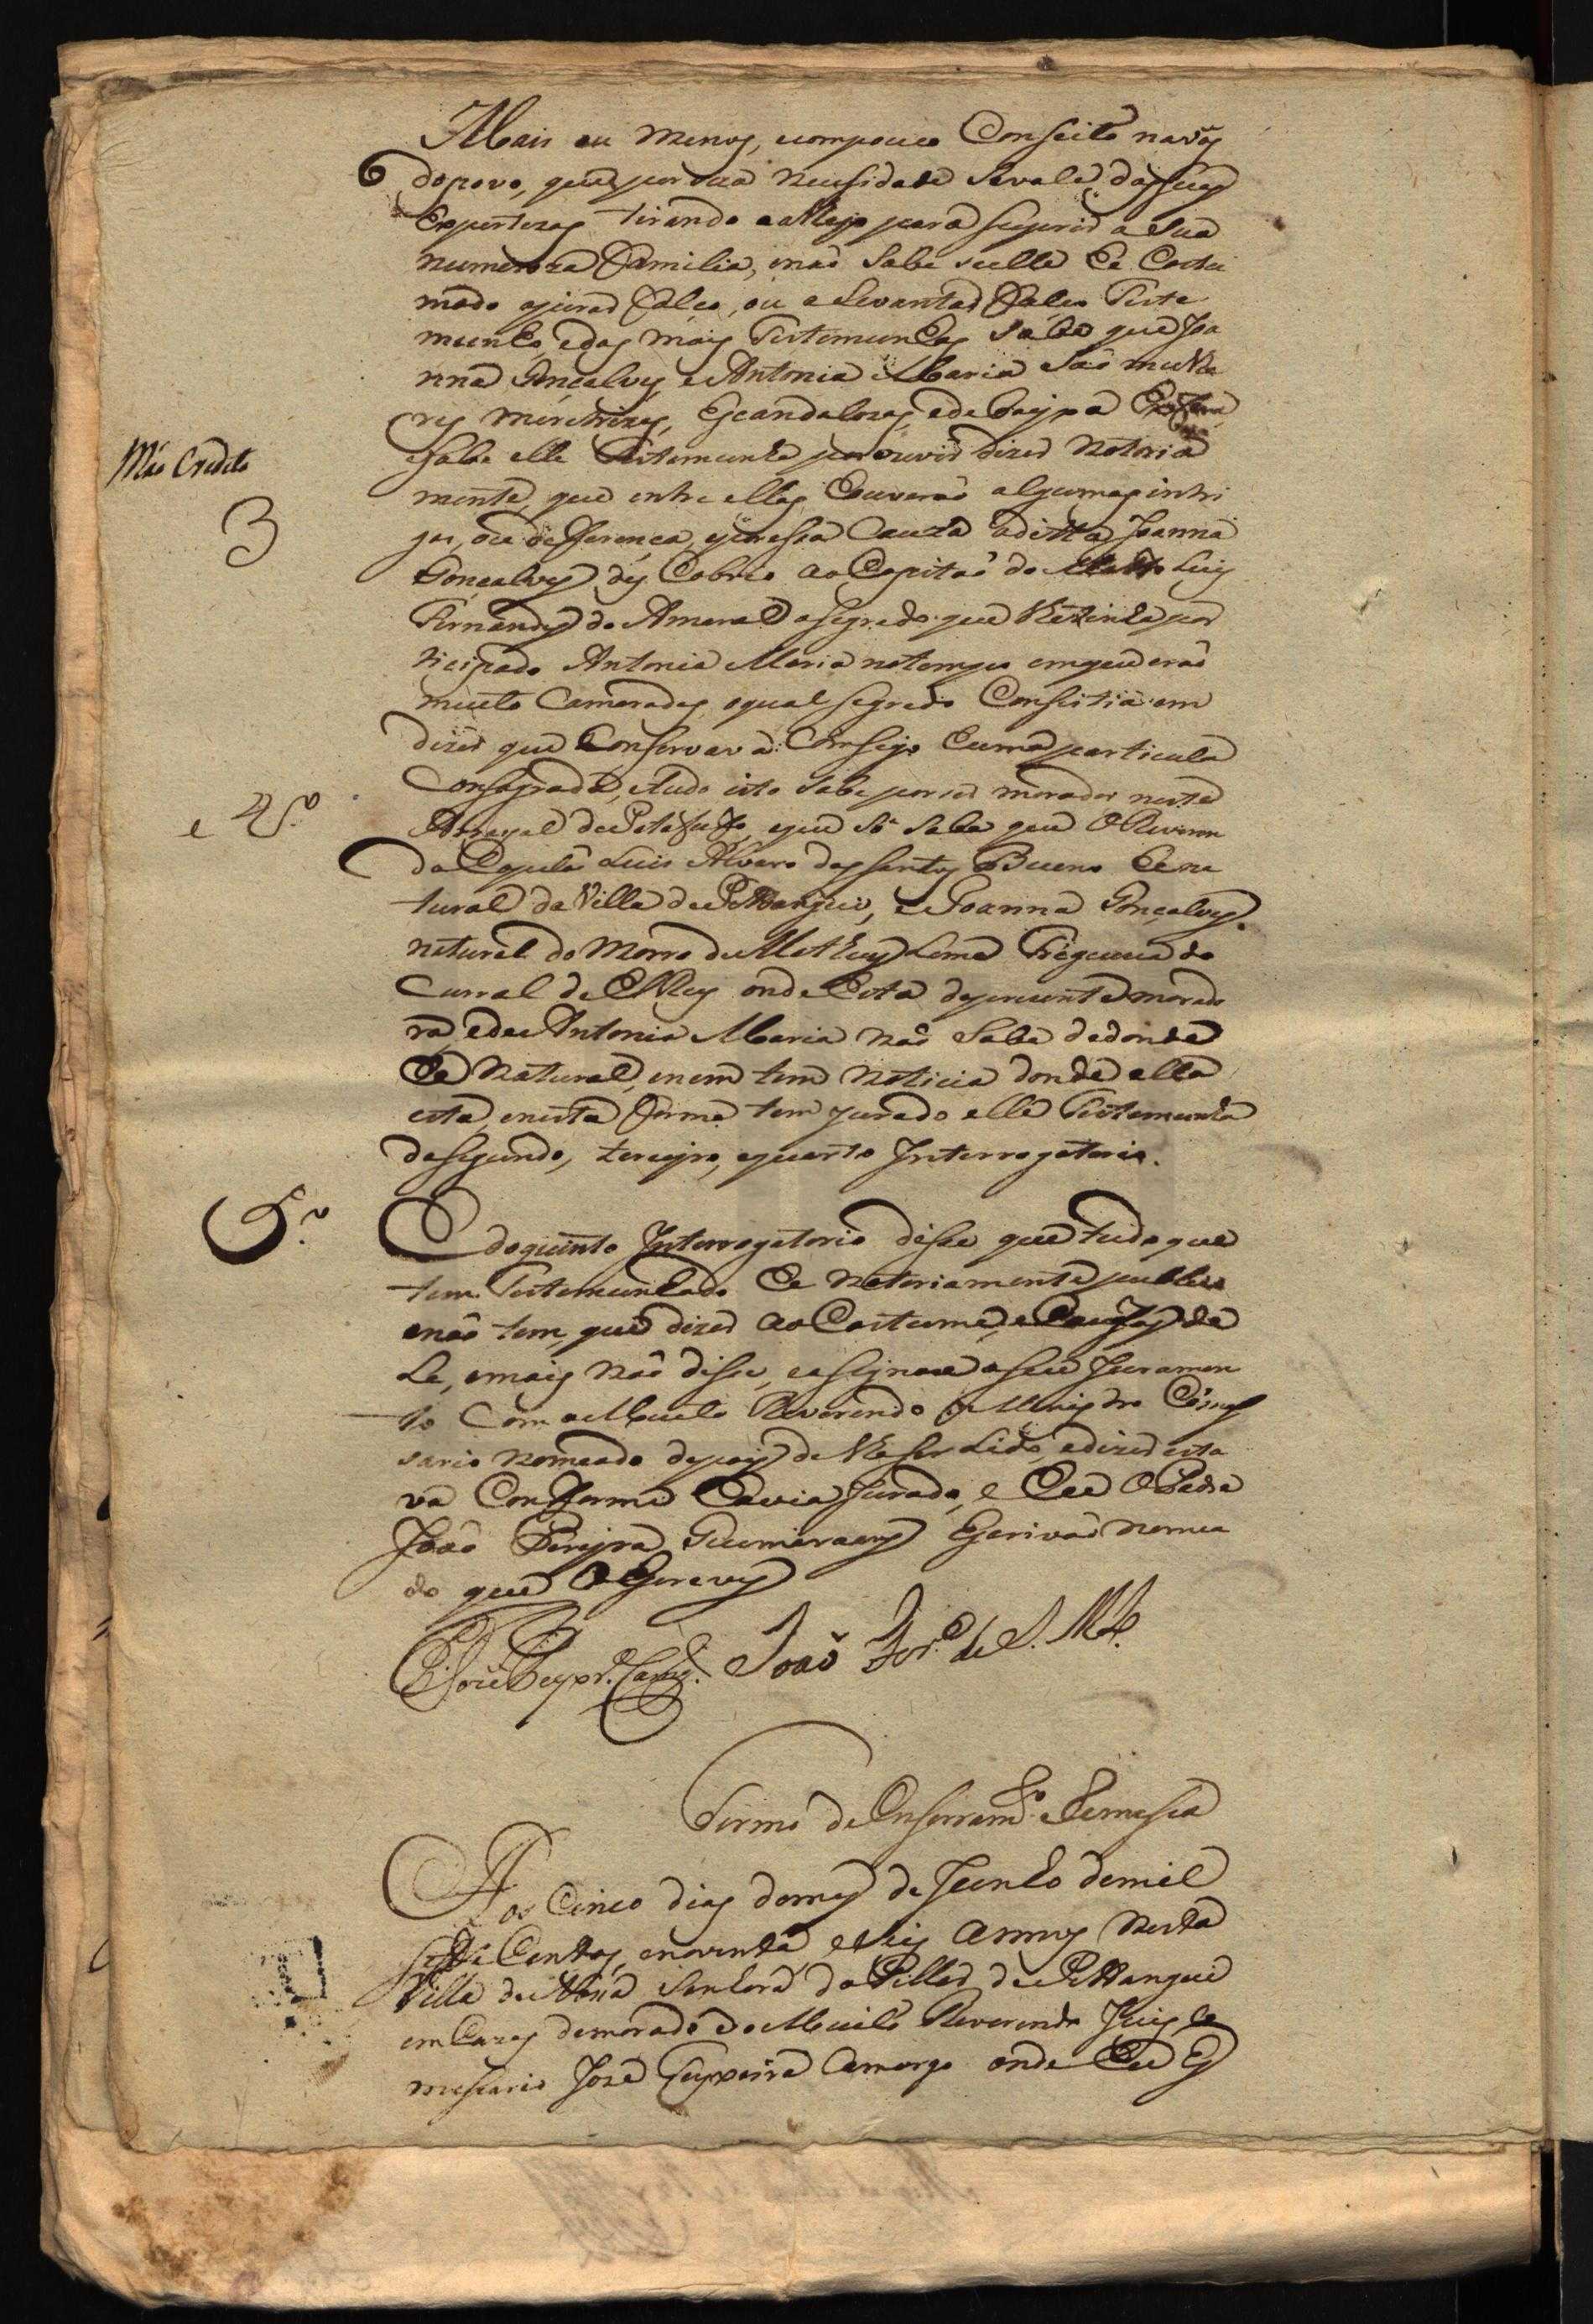 Mais ou menos, e com pouco Conseito na vós
do povo, que por sua necessidade se vale das suas
Espertezas tirando a Mezo para suprir a Sua
numeroza Familia, e naõ Sabe se elle he Costu
mado a jurar falço, ou a Levantar falço Teste
munho, e das mais Testemunhas Sabe que Joa
nna Gonçalves, e Antonia Maria Saõ mulhe
res meretrizes, Escandalozas, e de bayxa Esfera,
Máo Credito
e Sabe elle Testemunha por ouvir dizer notoria
mente, que entre ellas Houveraõ algumas intri
3
gas, ou defferença, e por essa Cauza a ditta Joanna
Gonçalves des Cobrio ao Capitaõ do Matto Luis
Fernandes do Amaral o segredo que lhe tinha par
ticipado Antonia Maria no tempo em que eraõ
muito Camaradas, o qual segredo Consistia em
dizer que Conservava Comsigo huma particula
Consagrada, e tudo isto Sabe por ser morador neste
e 4.º
Arrayal de Patafufo, e que só Sabe que O Reveren
do Capelaõ Luis Alvaro dos Santos Bueno he na
tural da Villa de Pitangui, e Joanna Gonçalves
natural do Morro de Matheus Leme Freguezia do
Curral de ElRey onde Está de prezente morado
ra, e de Antonia Maria naõ Sabe de donde
he natural, e nem tem noticia donde ella
está, e nesta forma tem jurado elle Testemunha
do segundo, terceyro, e quarto Interrogatorio.
5.º
E do quinto Interrogatorio disse que tudo que
tem Testemunhado he notoriamente publico
e naõ tem que dizer ao Costume, e Couzas de
Le, e mais naõ disse, e asignou o seu Juramen
to Com o Muito Reverendo Ministro Comis
sario nomeado depois de lhe ser Lido, e dizer esta
va Conforme havia Jurado, e Eu O Padre
João Pereyra Guimaraens Escrivaõ nomea
do que O Escrevy
José Teyxr.ª Camg.º João Fer.ª de S.
Termo de Enserram.to e Remessa
Aos Cinco dias do mes de Junho de mil
sette Centos, e noventa, e seis annos nesta
Villa de Nossa Senhora do Pillar de Pittangui
em Cazas de morada do Muito Reverendo Juis Co
missario José Teyxeira Camargo onde Eu Es